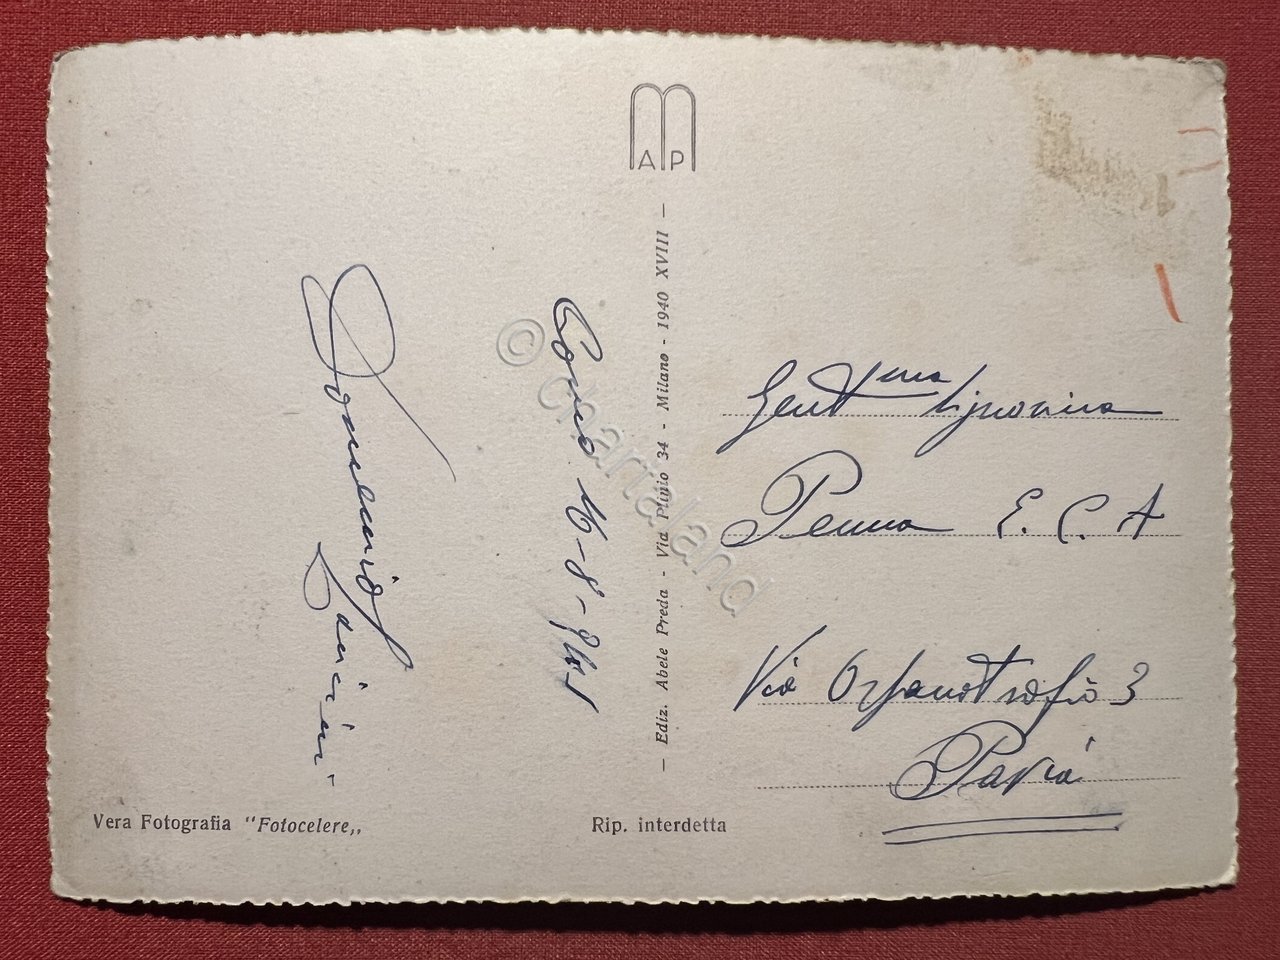 MAP
Como 16-8-941
Domenico
– Ediz. Abele Preda - Via Plinio 34 - Milano - 1940 XVIII –
Gent.ma Signorina
Penna E. C. A
Via Orfanotrofio 3
Pavia
Vera Fotografia "Fotocelere,,
Rip. interdetta
© chartaland